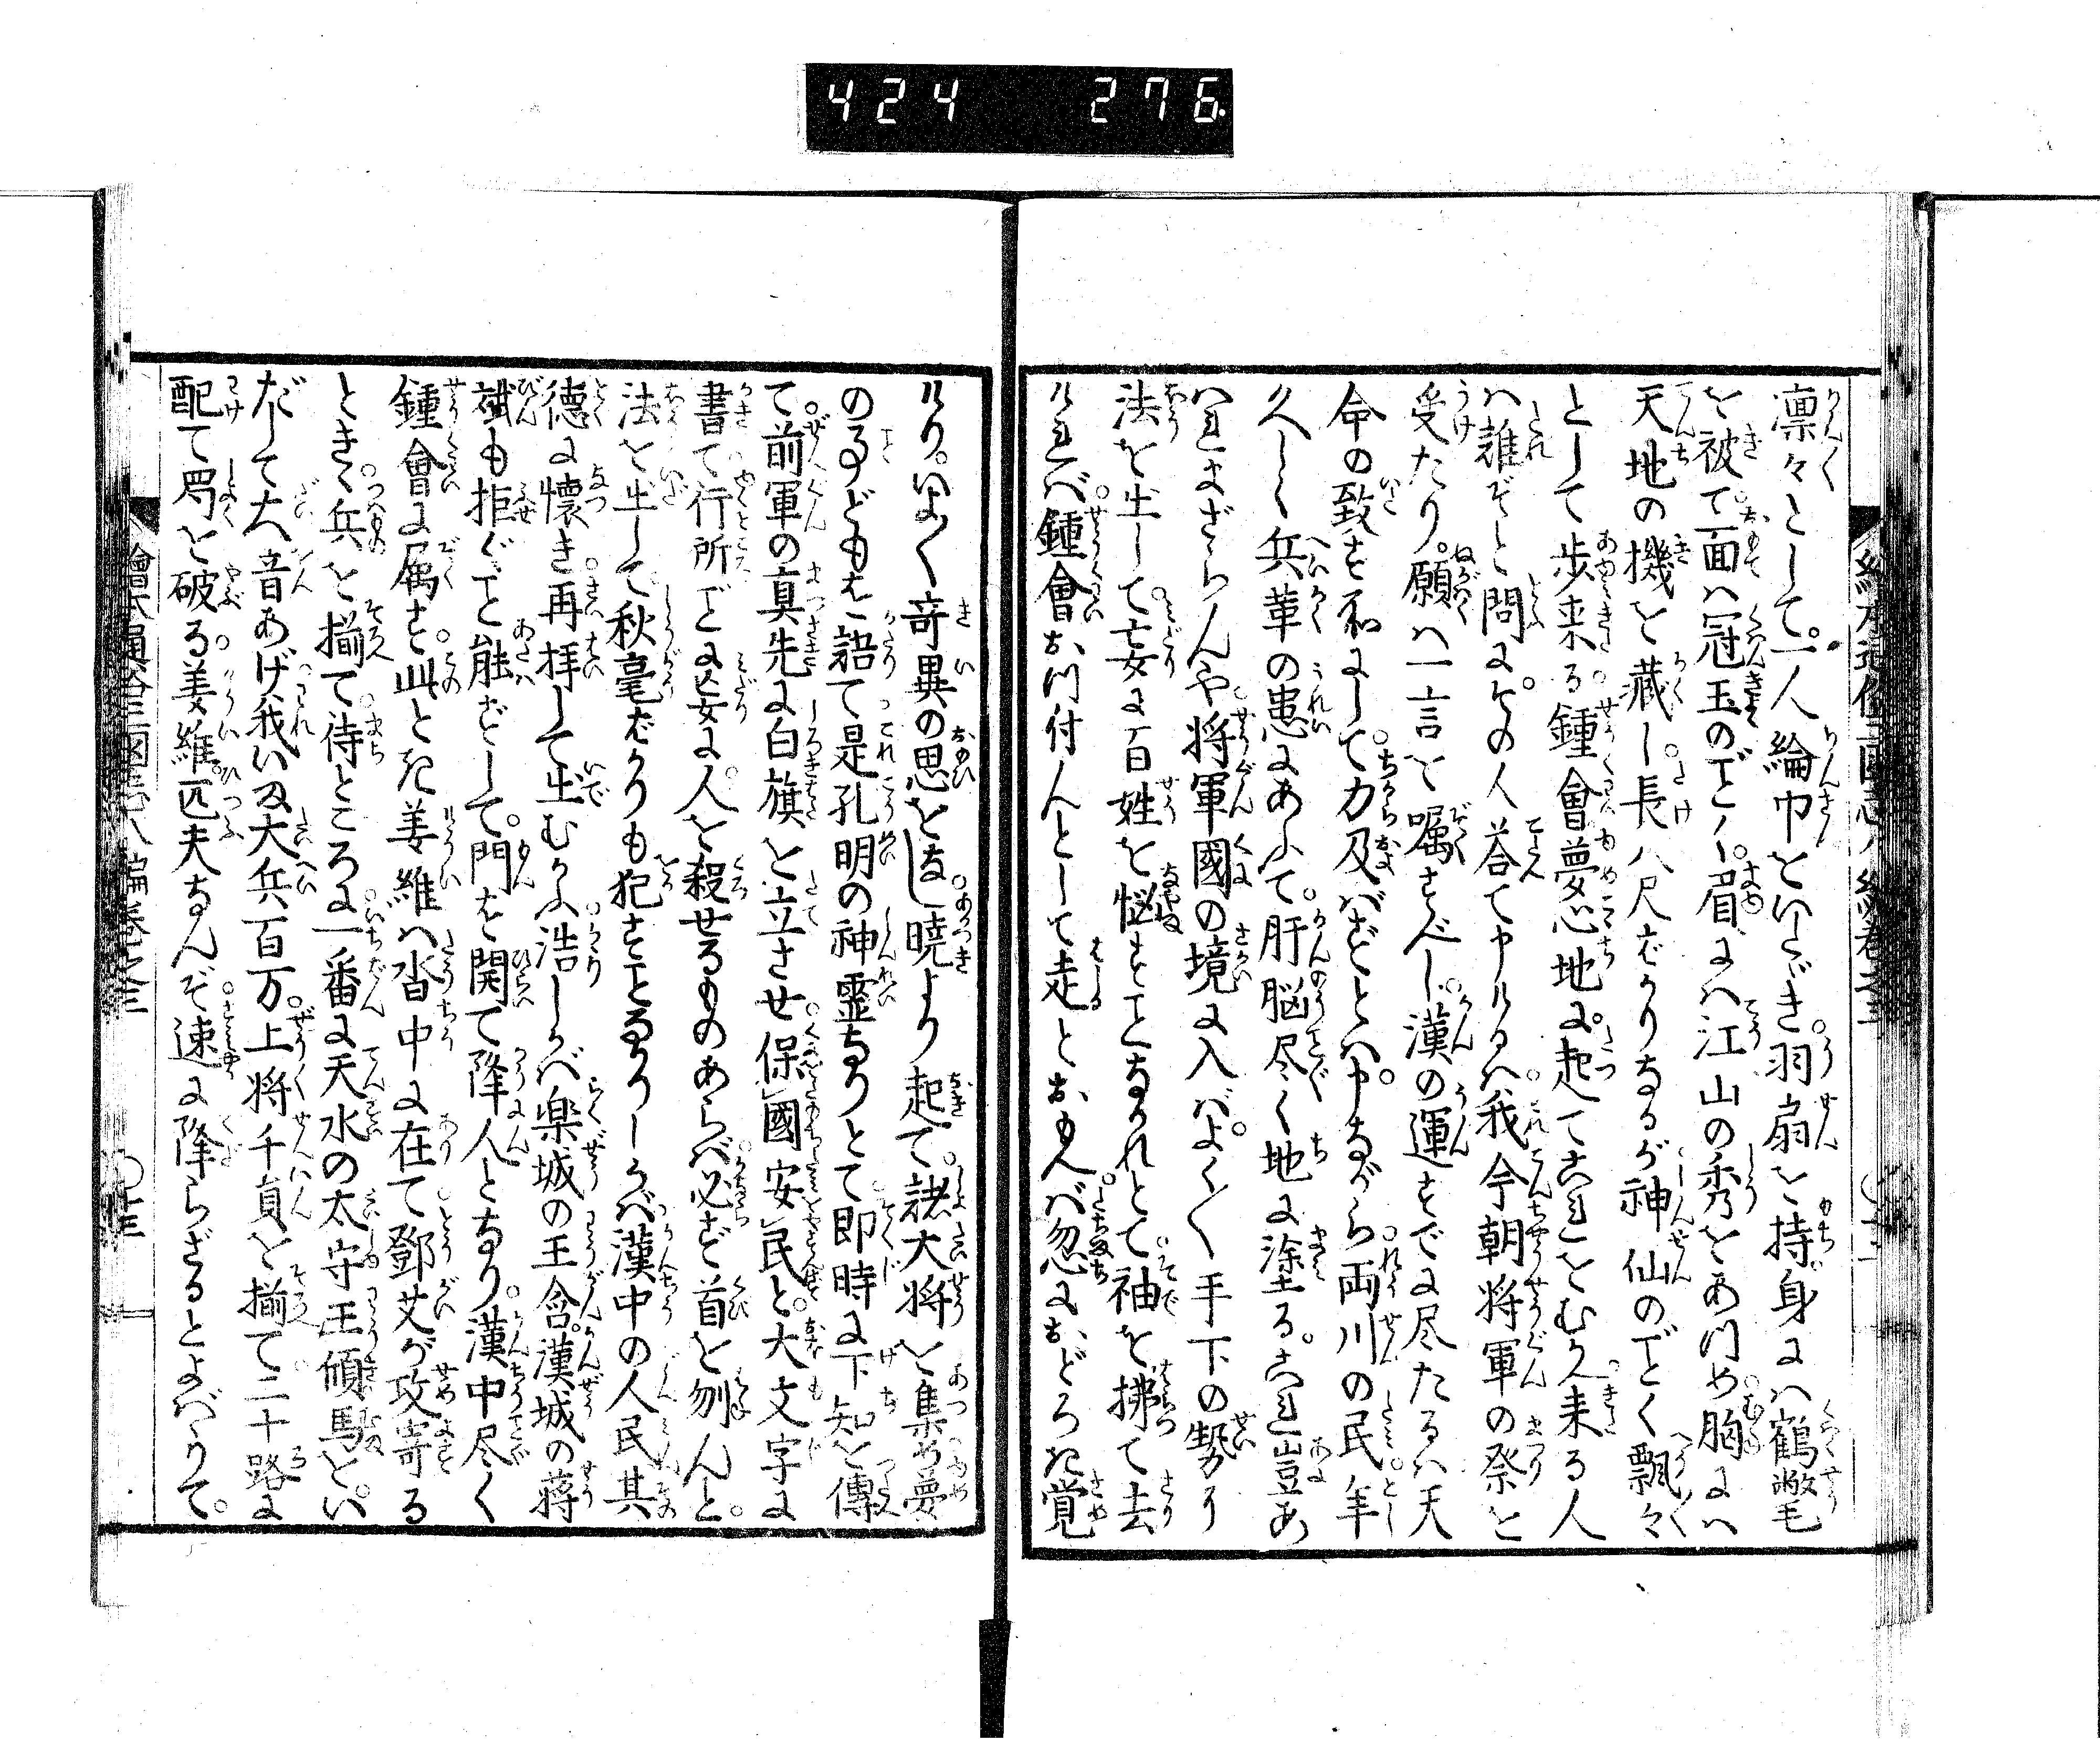 424 276
凛々として。一人綸巾をいたゞき。羽扇を持身には鶴氅
を被て。面は冠玉のごとし。眉には江山の秀をあつめ。胸には
天地の機を蔵し。長八尺ばかりなるが神仙のごとく飄々
として歩来る。鍾會夢心地に。起てこれをむかへ。来る人
は誰ぞと問に。その人荅て申けるは。我今朝将軍の祭を
受たり。願は一言を嘱すべし。漢の運すでに尽たるは天
命の致す所にして。力及ばずとは申ながら。両川の民。年
久しく兵革の患にあふて。肝脳尽く地に塗る。これ豈あ
はれまざらんや。将軍國の境に入ばよく〳〵手下の勢に
法を出して。妄に百姓を悩すことなかれとて。袖を拂て去
ければ。鍾會おひ付んとして走とおもへば。忽におどろき覚
けり。いよ〳〵竒異の思をなし。暁より起て。諸大将を集め夢
の事どもを語て。是孔明の神霊なりとて。即時に下知を傳
て。前軍の真先に白旗を立させ。保國安民と。大文字に
書て。行所ごとに妄に。人を殺せるものあらば。必ず首を刎んと。
法を出して。秋毫ばかりも犯すことなかりしかば。漢中の人民其
徳に懐き。再拝して出むかふ。浩しかば楽城の王含。漢城の蒋
斌も拒ぐこと能ずして。門を開て降人となり。漢中尽く
鍾會に属す。此とき姜維は沓中に在て。鄧艾が攻寄る
ときく。兵を揃て。待ところに。一番に天水の太守王頎馬をい
だして大音あげ。我いま大兵百万。上将千員を揃て。二十路に
配て蜀を破る。姜維匹夫なんぞ。速に降らざるとよばゝりて。
繪本通俗三國志八編巻之三